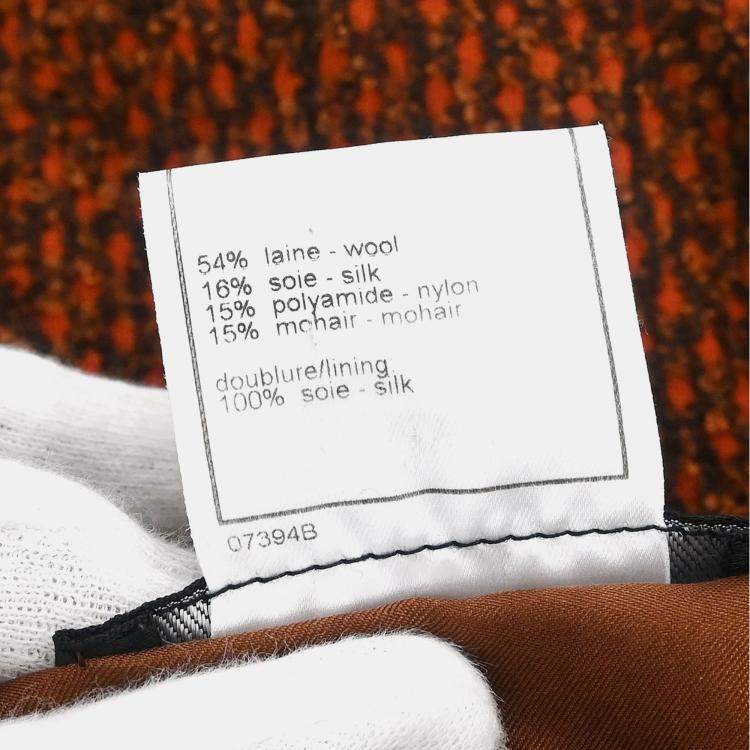 54% laine - wool
16% soie - silk
15% polyamide - nylon
15% mohair - mohair
doublure/lining
100% soie - silk
07394B